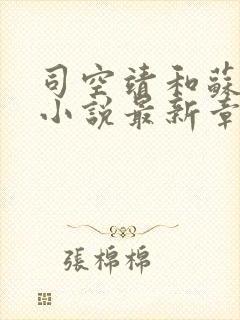 司空靖和蘇
小說最新章
張棉棉